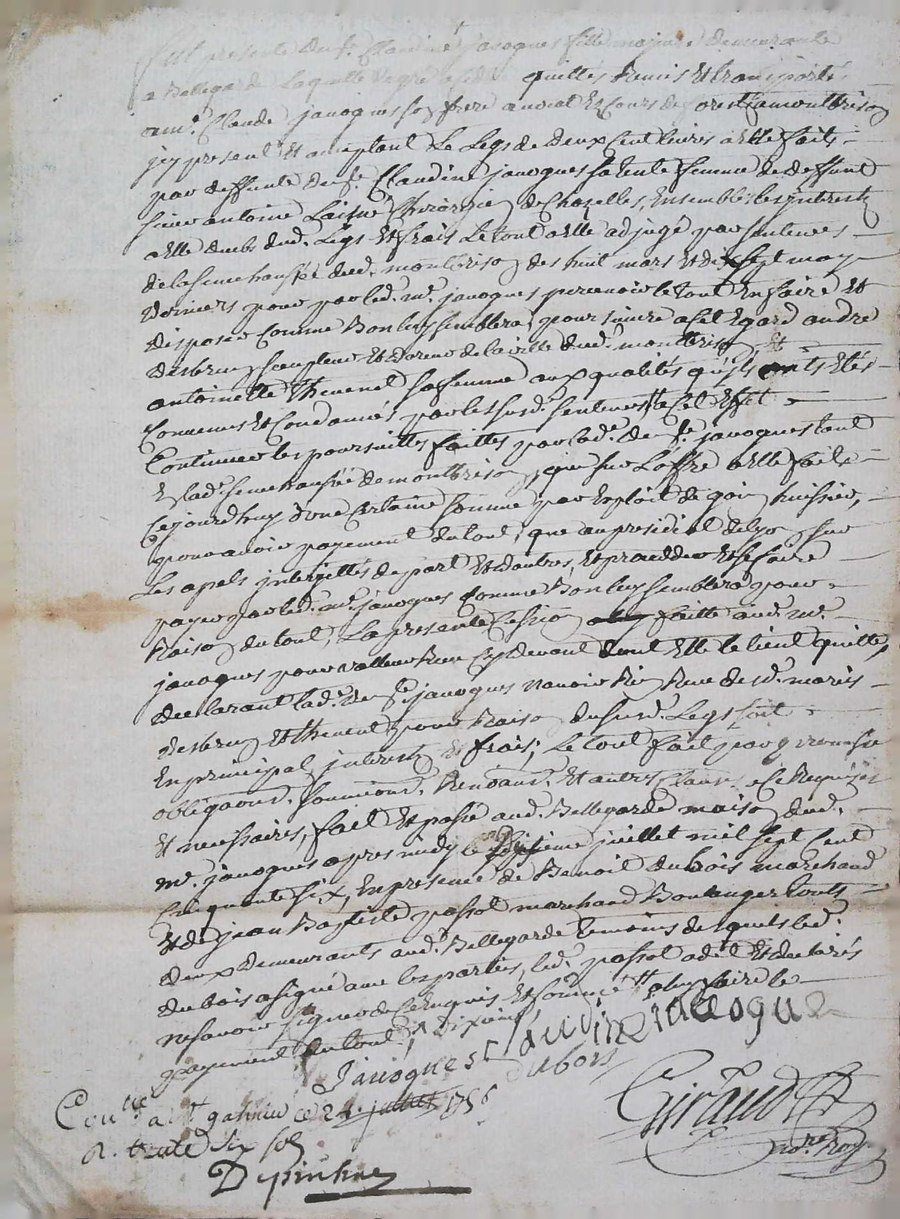 Fut présente dem.lle Claudine javogues fille majeure demeurante
a Bellegarde Laquelle de gré a cédé quitté, Remis Et transportés
a m.e Claude javogues son frere avocat Es Cours de forest a montbrison
jcy present Et acceptant Le Legs de deux Cent livres a Elle faits
par deffunte dem.lle Claudine javogues sa tante femme de deffunt
sieur antoine Laisné Chirurgien de Chazelles, Ensemble les jnterests
a Elle dubs dud. Legs Et frais Le tout a Elle adjugé par sentences
de la senechaussée dud. montbrison des huit mars Et dix sept may
derniers pour par led. m.e javogues percevoir le tout En faire Et
disposer Comme Bon luy semblera, pour suivre a cet Egard andré
desbruy sculpteur Et doreur de la ville dud. montbrison, Et
antoinette thevenet sa femme aux qualités qu'jls onts Etés
Convenus Et Condamnés par les susd. sentences, a cet Effet
Continuer les poursuittes faittes par lad. dem.lle javogues tant
En lad. senechaussée de montbrison, que sur L'offre a Elle faite
Cejourdhuy d'une Certaine somme par Exploit de goin huissier,
pour avoir payement du tout, que au presidial de Lyon sur
Les apels jnterjettés de part Et dautres, Et proceder Et se faire
payer par led. m.e javogues Comme Bon luy semblera pour
Raison du tout, La presente Cession faitte aud. m.e
javogues pour valleur Reçue Cy devant dont Elle le tient quitte,
declarant lad. dem.lle javogues n'avoir Rien Reçu desd. mariés
desbruy Et thevenet pour Raison du susd. Legs soit
En principal, jnterests Et frais; Le tout fait par promesse
obligaons. soumions. Rendaons. Et autres Clauses a ce Requises
Et necessaires, fait Et passé aud. Bellegarde maison dud.
m.e javogues apres midy le juillet mil sept Cent
Cinquante six, En presence de Benoit dubois marchand
Et de jean Baptiste passot marchand Boulanger touts
deux demeurants aud. Bellegarde temoins desquels led.
dubois a signé avec les parties, led. passot a dit Et declarés
ne savoir signer de ce Enquis Et sommé
payement du tout
Javogues Claudine iaveogue
dubois
Con.llé a S.t galmier ce 24 juillet 1756
R. trente six sols
Depinhac
Giraud
no.re Roy.